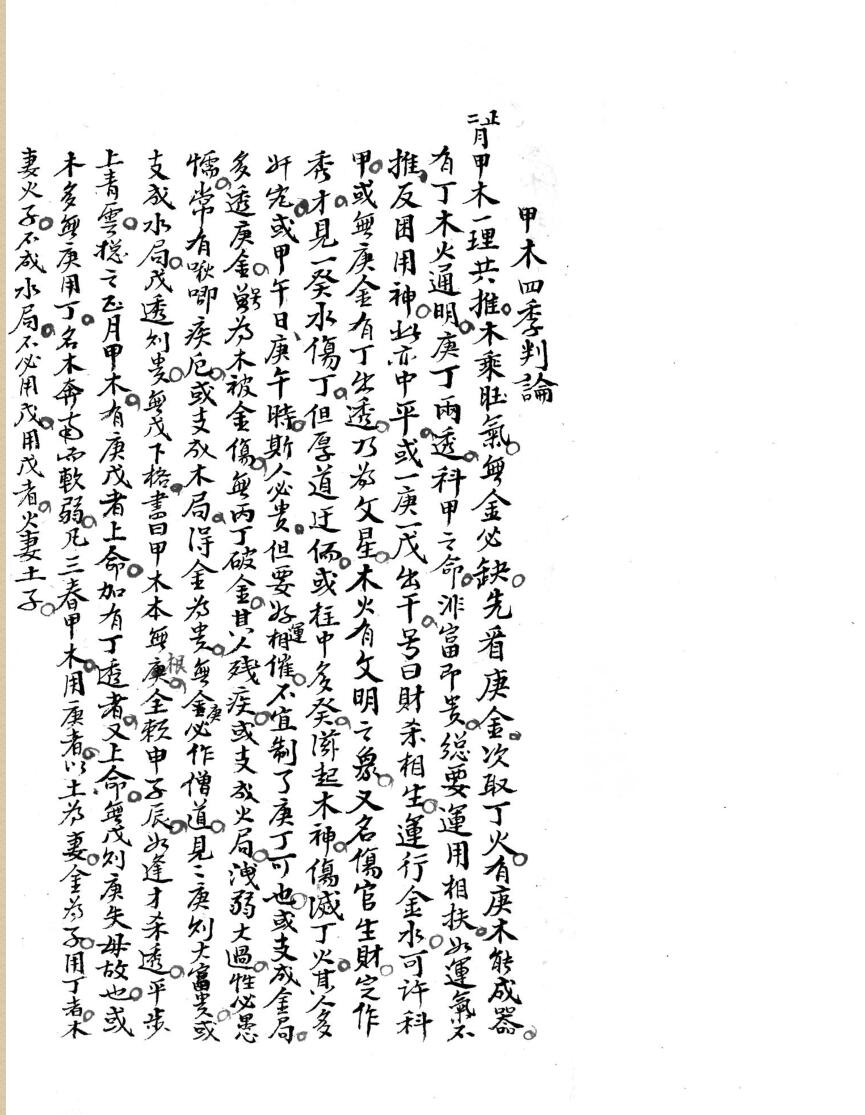 甲木四季判論
正二月甲木一理共推。木乘旺氣。無金必缺。先看庚金。次取丁火。有庚木能成器。
有丁木火通明。庚丁兩透。科甲之命。非富即貴。總要運用相扶。如運氣不
推。反困用神。此亦中平。或一庚一戊出干。号曰財杀相生。運行金水。可許科
甲。或無庚金。有丁出透。乃為文星。木火有文明之象。又名傷官生財。定作
秀才。見一癸水傷丁。但厚道迂儒。或柱中多癸。滋起木神。傷滅丁火。其人多
奸宄。或甲午日、庚午時。斯人必貴。但要好運相催。不宜制了庚丁可也。或支成金局。
多透庚金。號為木被金傷。無丙丁破金。其人殘疾。或支成火局。洩弱太過。性必愚
懦。常有啾唧疾厄。或支成木局。得金為貴。無庚金必作僧道。見二庚則大富貴。或
支成水局。戊透則貴。無戊下格。書曰甲木本無根。全賴申子辰。如逢才杀透。平步
上青雲。總之正月甲木。有庚戊者上命。加有丁透者又上命。無戊則庚失母故也。或
木多無庚用丁。名木奔南而軟弱。凡三春甲木。用庚者。以土為妻。金為子。用丁者。木
妻火子。不成水局。不必用戊。用戊者。火妻土子。